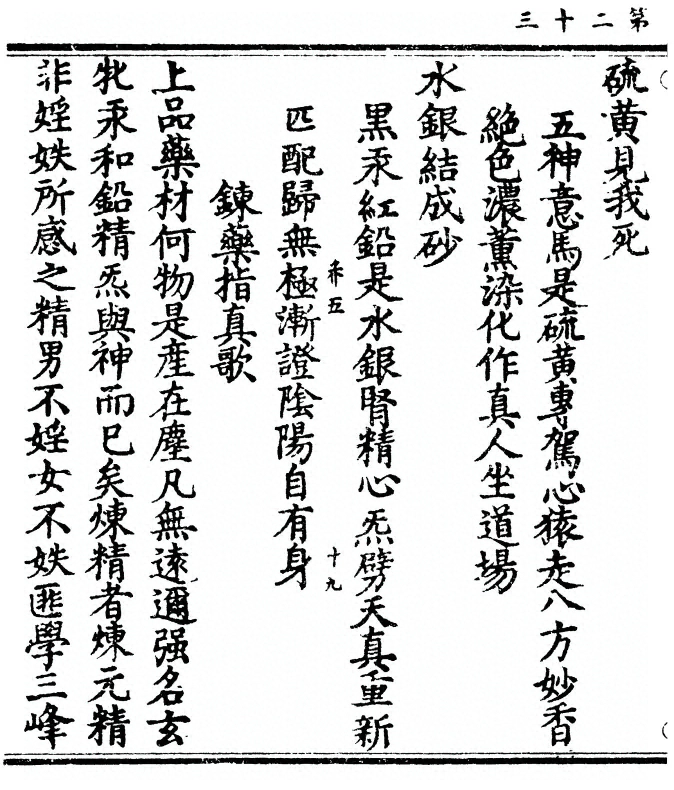 第二十三
硫黄見我死
五神意馬是硫黄專駕心猿走八方妙香
絕色濃薰染化作真人坐道場
水銀結成砂
黑汞紅鉛是水銀腎精心炁劈天真重新
匹配歸無極漸證陰陽自有身
釆五
十九
鍊藥指真歌
上品藥材何物是產在塵凡無遠邇强名玄
牝汞和鉛精炁與神而已矣煉精者煉元精
非婬妷所感之精男不婬女不妷匪學三峰